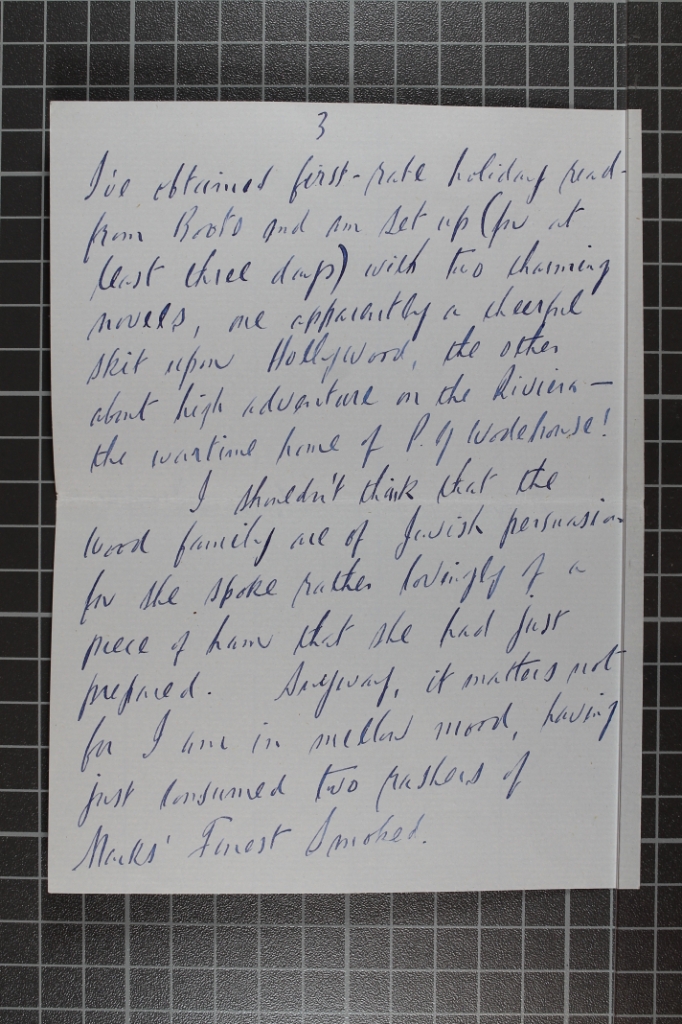 3
I've obtained first-rate holiday read-
from Boots and am set up (for at
least three days) with two charming
novels, one apparently a cheerful
skit upon Hollywood, the other
about high adventure on the Riviera —
the wartime home of P. G Wodehouse!
I shouldn't think that the
Wood family are of Jewish persuasion
for she spoke rather lovingly of a
piece of ham that she had just
prepared. Anyway, it matters not
for I am in mellow mood, having
just consumed two rashers of
Marks' Finest Smoked.